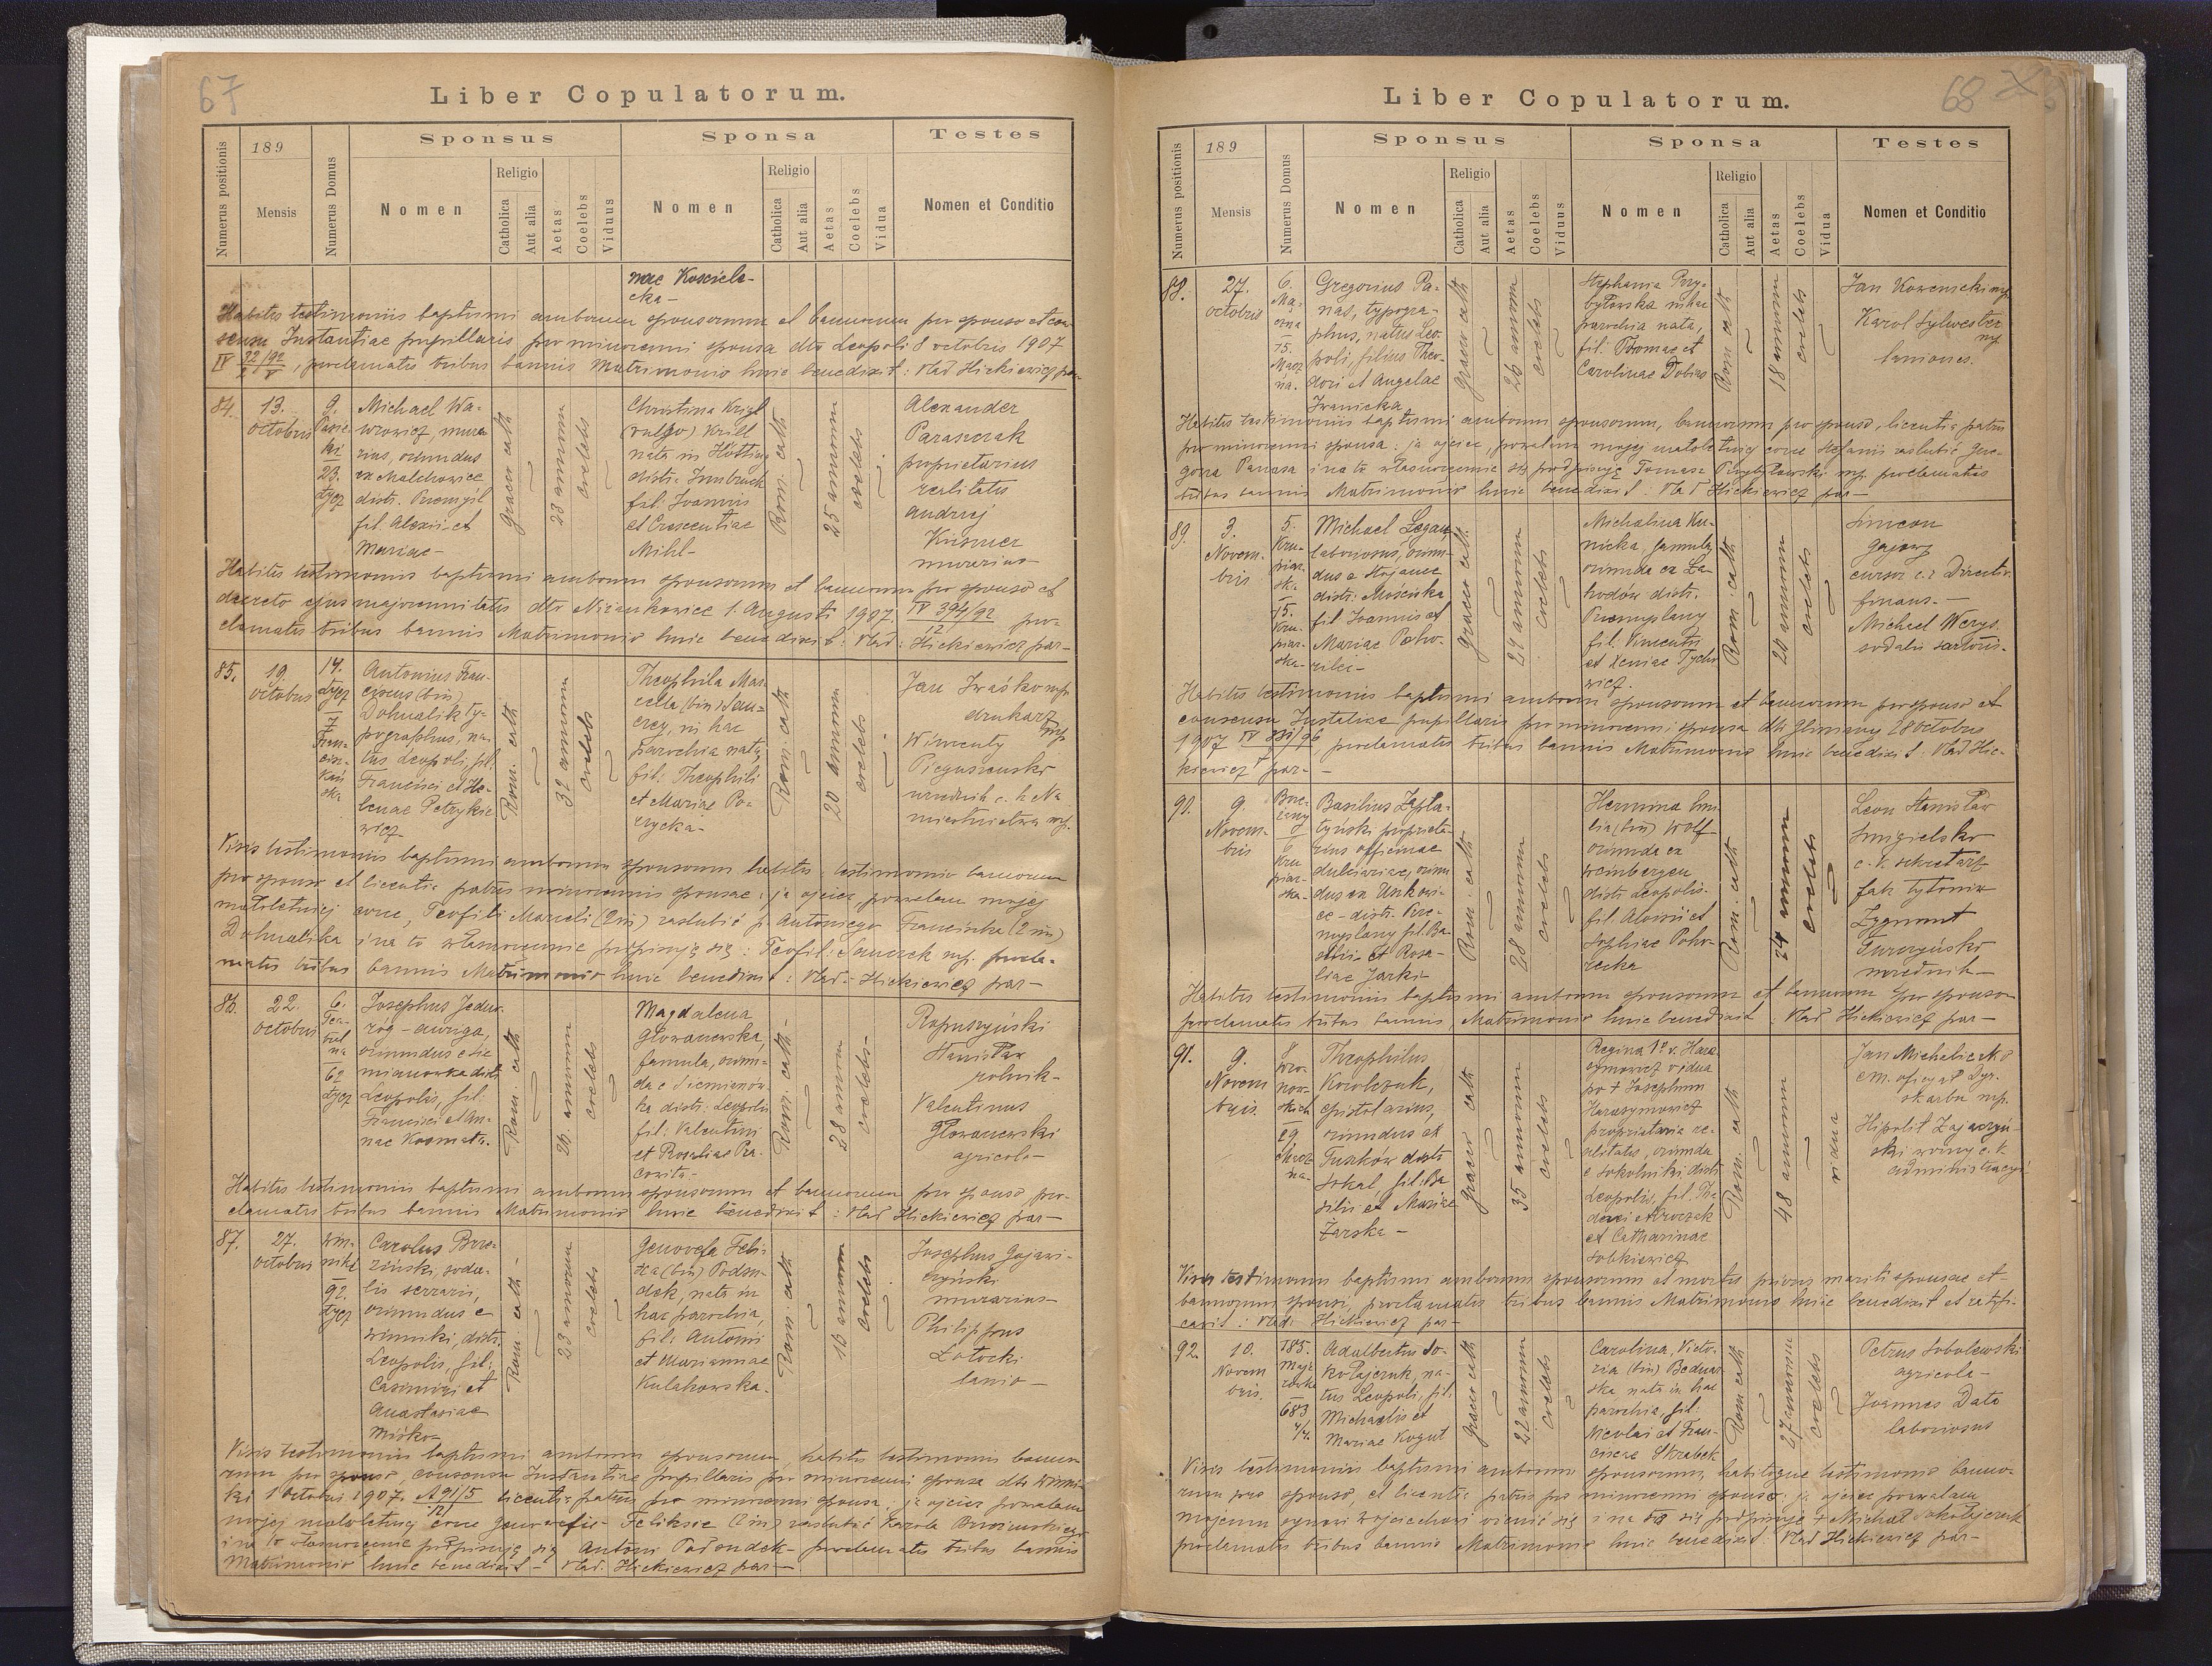 67
Liber Copulatorum.
Numerus positionis
189
Mensis
Numerus Domus
Sponsus
Nomen
Religio
Catholica
Aut alia
Aetas
Coelebs
Viduus
Sponsa
Nomen
Religio
Catholica
Aut alia
Aetas
Coelebs
Vidua
Testes
Nomen et Conditio
nae Kościele-
cka-
Habitis testimoniis baptismi amborum sponsorum et bannorum pro sponso et con
sensu Instantiae pupillaris pro minorenni sponsa dto Leopoli 8 octobris 1907
proclamatis tribus bannis Matrimonio huic benedixit: Vlad Hickiewicz par-
84.
13.
octobris
9.
23.
Łycz
Michael Wa-
wrowicz, mura
rius, oriundus
ex Malchowice
distr. Przemyśl
fil. Alexii et
Mariae-
Graeco cath
23 annorum
coelebs
Christina Krigl
(vulgo) Krill
nata in Hötting
distr. Innsbruck
fil. Joannis
et Crescentiae
Mihl-
Rom. cath
25 annorum
coelebs
Alexander
Paraszczak
proprietarius
realitatis
Andrzej
murarius
Habitis testimoniis baptismi amborum sponsorum et bannorum pro sponso et
decreto ejus majorennitatis dto Niżankowice 1. Augusti 1907. IV 394/92 pro-
clamatis tribus bannis Matrimonio huic benedixit: Vlad: Hickiewicz par-
85.
19.
octobris
14.
Łycz
7
Fran-
cisz-
kań
ska
Antonius Fran-
ciscus (bin)
Dohnalik ty-
pographus, na-
tus Leopoli, fil.
Francisci et He-
lenae Petrykie
wicz
Rom. cath
32 annorum
coelebs
Theophila Mar-
cella (bin) San-
czey, in hac
parochia nata,
fil. Theophili
et Mariae Po-
Rom. cath
20 annorum
coelebs
Jan Iwaśko mp
drukarz mp
Wincenty
Pieguszewski
urzędnik c. k. Na
miestnictwa mp.
Visis testimoniis baptismi amborum sponsorum habitis testimonio bannorum
pro sponso et licentia patris minorennis sponsae: ja ojciec pozwalam mojej
małoletniej córce, Teofili Marceli (2 im) zaślubić p. Antoniego Franciszka (2 im)
Dohnalika i na to własnoręcznie podpisuję się: Teofil: Sanczek mp. procla-
matis tribus bannis Matrimonio huic benedixit: Vlad: Hickiewicz par-
86.
22.
octobris
6.
Tea-
tral
na
62
Łycz
Josephus Jedno-
róg - auriga,
oriundus e Sie
mianówka distr
Leopolis, fil:
Francisci et An-
nae Kosmata.
Rom. cath
26. annorum
coelebs
Magdalena
Głowaczewska,
famula, oriun-
da e Siemianów
ka distr. Leopolis
fil: Valentini
et Rosaliae Pra-
Rom. cath-
28 annorum
coelebs-
Ropuszyński
Stanisław
rolnik-
Valentinus
agricola-
Habitis testimoniis baptismi amborum sponsorum et bannorum pro sponso pro-
clamatis tribus bannis Matrimonio huic benedixit: Vlad Hickiewicz par-
87.
27.
octobris
Win-
niki
92.
Łycz
Carolus Brze-
ziński, soda-
lis serrarii,
oriundus e
Winniki, distr.
Leopolis, fil:
Casimiri et
Anastasiae
Miśko-
Rom cath-
23 annorum
coelebs
Genovefa Feli-
xa (bin) Podsu-
dek, nata in
hac parochia,
fil: Antonii
et Mariannae
Kulakowska.
Rom. cath
18 annorum
coelebs
Josephus Gajawi-
czyński
murarius-
Philippus
Łotocki
lanio-
Visis testimoniis baptismi amborum sponsorum, habitis testimoniis banno-
rum pro sponso, consensu Instantiae pupillaris pro minorenni sponsa dto Winni-
ki 1 octobris 1907. A 91/5 licentia patris pro minorenni sponsa: ja ojciec pozwalam
mojej małoletniej córce Genowefie Feliksie (2 im) zaślubić Karola Brzezińskiego
i na to własnoręcznie podpisuję się Antoni Podsudek- proclamatis tribus bannis
Matrimonio huic benedixit- Vlad. Hickiewicz par-
68
Liber Copulatorum.
Numerus positionis
189
Mensis
Numerus Domus
Sponsus
Nomen
Religio
Catholica
Aut alia
Aetas
Coelebs
Viduus
Sponsa
Nomen
Religio
Catholica
Aut alia
Aetas
Coelebs
Vidua
Testes
Nomen et Conditio
88.
27.
octobris
6.
15.
Gregorius Pa-
nas, typogra-
phus, natus Leo-
poli, filius Theo-
dori et Angelae
Iwanicka
Graeco cath
26 annorum
coelebs
Stephania Przy-
byłowska in hac
parochia nata,
fil. Thomae et
Carolinae Dobias
Rom cath
18 annorum
coelebs
Jan Kowenicki mp
Karol Sylwester
mp
laniones.
Habitis testimoniis baptismi amborum sponsorum, bannorum pro sponso, licentia patris
pro minorenni sponsa: ja ojciec, pozwalam mojej małoletniej córce Stefanii zaślubić Grze-
gorza Panasa i na to własnoręcznie się podpisuję Tomasz Przybyłowski mp. proclamatis
tribus bannis Matrimonio huic benedixit: Vlad Hickiewicz par-
89.
3.
Novem-
bris
5.
Kru-
piar-
ska
15.
Kru-
piar-
ska-
Michael Legan,
laboriosus, oriun-
dus e Stojance
distr: Mościska
fil Joannis et
Mariae
Graeco cath.
29 annorum
coelebs
Michalina Ku-
nicka, famula,
oriunda ex Za-
hodów distr.
Przemyślany
fil. Vincentii
et Xeniae Tycho
wicz.
Rom. cath
20 annorum
coelebs
Simeon
Gajowy
cursor c. r. Directio.
finans.-
Michael Werys.
sodalis sartoris.
Habitis testimoniis baptismi amborum sponsorum et bannorum pro sponso et
consensu Instatiae pupillaris pro minorenni sponsa dto Gliniany 28 octobris
1907 proclamatis tribus bannis Matrimonio huic benedixit. Vlad Hic-
kiewicz par-
90.
9.
Novem-
bris
6
Kru
piar-
ska-
Basilius Zapła-
tyński proprieta-
rius officinae
dulciariae, oriun
dus ex Unkowi-
ce - distr. Prze-
myślany fil. Ba-
silii et Rosa-
liae Jarki-
Rom. cath
28 annorum
coelebs
Hermina Emi-
lia (bin) Wolf
oriunda ex
Weinbergen
distr Leopolis.
fil Aloisii et
Sophiae Poho-
recka
Rom. cath
24 annorum
coelebs
Leon Stanisław
Śmigielski
c. k. sekretarz
fab tytoniu
Zygmunt
Turczyński
urzędnik-
Habitis testimoniis baptismi amborum sponsorum et bannorum pro sponso
proclamatis tribus bannis Matrimonio huic benedixit: Vlad Hickiewicz par-
91.
9.
Novem
bris
8
29
Theophilus
Korolczuk,
epistolarius,
oriundus ex
Tuszków distr
Sokal fil: Ba
silii et Mariae
Żarska-
Graeco cath
35 annorum
coelebs
Regina 1º v. Hara
symowicz vidua
po † Josephum
Harasymowicz
proprietaria re-
alitatis, oriunda
e Sokolniki distr
Leopolis, fil. Tha
daei Mroczek
et Catharinae
Sołkiewicz
Rom. cath
48 annorum
vidua
Jan Micheliczko
em. oficyał Dyr.
skarbu mp.
Hipolit Zajączyń-
ski woźny c. k.
administracyi
Visis testimoniis baptismi amborum sponsorum et mortis prioris mariti sponsae et
bannorum sponsi, proclamatis tribus bannis Matrimonio huic benedixit et ratifi-
cavit: Vlad: Hickiewicz par-
92.
10.
Novem
bris.
185.
Maje
rówka
683
1/4.
Adalbertus So-
kołajczuk, na-
tus Leopoli, fil:
Michaelis et
Mariae Kogut
Graeco cath
22 annorum
coelebs
Carolina, Victo-
ria (bin) Bednar
ska nata in hac
parochia, fil:
Nicolai et Fran-
ciscae Skrabek
Rom cath
27 annorum
coelebs
Petrus Sobolewski
agricola-
Joannes Data
laboriosus
Visis testimoniis baptismi amborum sponsorum, habitoque testimonio banno-
rum pro sponso, et licentia patris pro minorenni sponso: ja ojciec pozwalam
mojemu synowi Wojciechowi żenić się i na to się podpisuję † Michał Sokołajczuk
proclamatis tribus bannis Matrimonio huic benedixit Vlad Hickiewicz par-